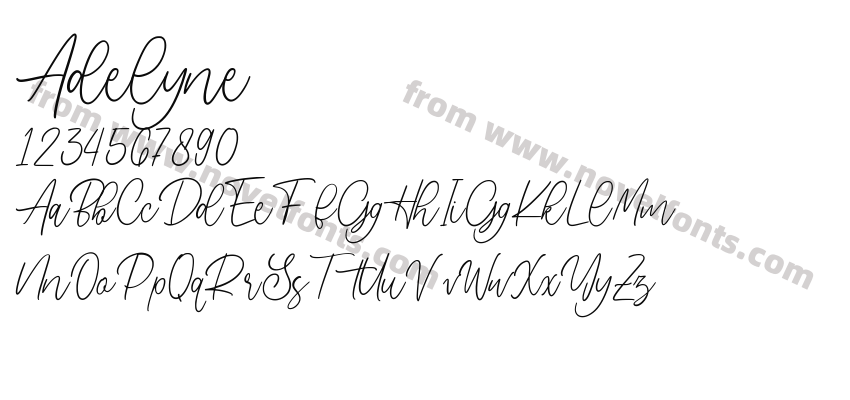 Adelyne
1234567890
AaBbCcDdEeFfGgHhIiGgKkLlMm
NnOoPpQqRrSsTtUuVvWwXxYyZz
from www.novelfonts.com
from www.novelfonts.com